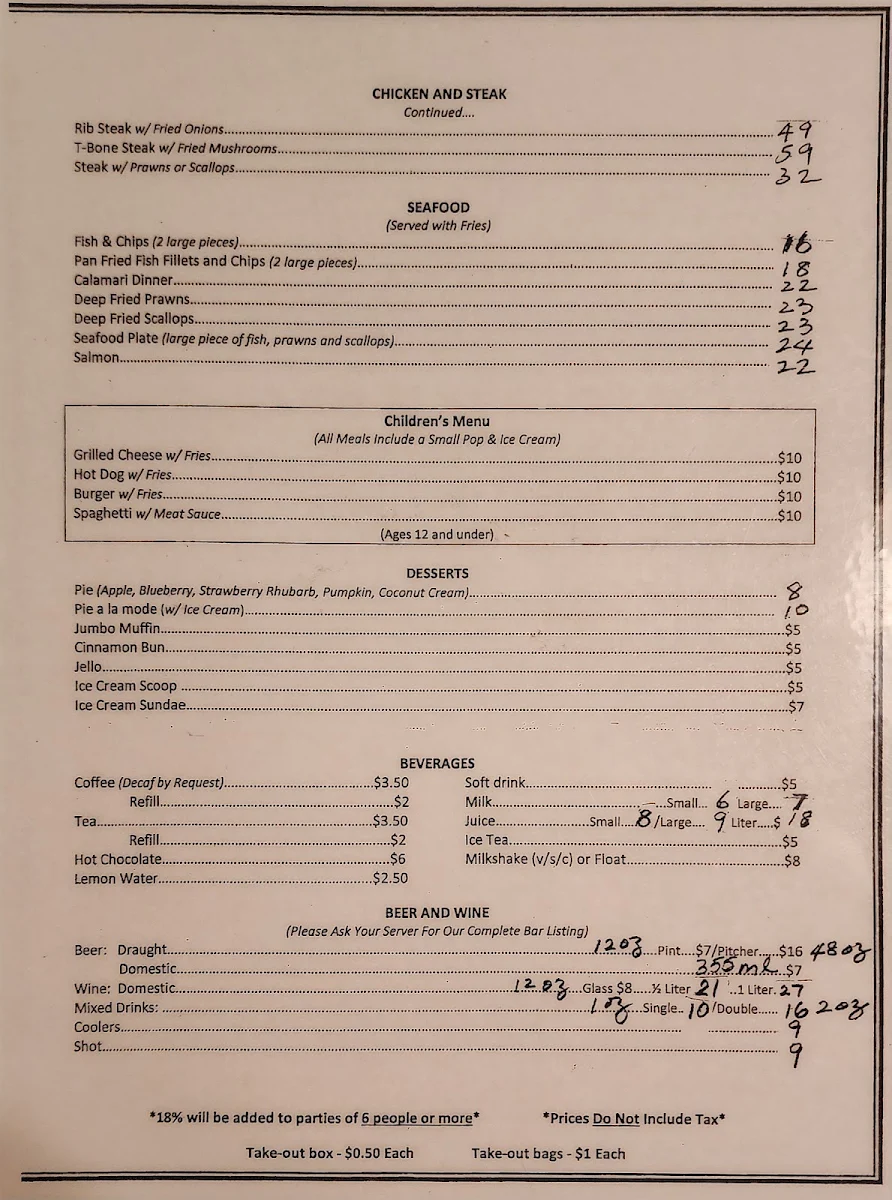 CHICKEN AND STEAK
Continued....
Rib Steak w/ Fried Onions 49
T-Bone Steak w/ Fried Mushrooms 59
Steak w/ Prawns or Scallops 32
SEAFOOD
(Served with Fries)
Fish & Chips (2 large pieces) 16
Pan Fried Fish Fillets and Chips (2 large pieces) 18
Calamari Dinner 22
Deep Fried Prawns 23
Deep Fried Scallops 23
Seafood Plate (large piece of fish, prawns and scallops) 24
Salmon 22
Children's Menu
(All Meals Include a Small Pop & Ice Cream)
Grilled Cheese w/ Fries $10
Hot Dog w/ Fries $10
Burger w/ Fries $10
Spaghetti w/ Meat Sauce $10
(Ages 12 and under)
DESSERTS
Pie (Apple, Blueberry, Strawberry Rhubarb, Pumpkin, Coconut Cream) 8
Pie a la mode (w/ Ice Cream) 10
Jumbo Muffin $5
Cinnamon Bun $5
Jello $5
Ice Cream Scoop $5
Ice Cream Sundae $7
BEVERAGES
Coffee (Decaf by Request) $3.50
Refill $2
Tea $3.50
Refill $2
Hot Chocolate $6
Lemon Water $2.50
Soft drink $5
Milk Small 6 Large 7
Juice Small 8/Large 9 Liter $18
Ice Tea $5
Milkshake (v/s/c) or Float $8
BEER AND WINE
(Please Ask Your Server For Our Complete Bar Listing)
Beer: Draught 12oz Pint $7/Pitcher $16 48oz
Domestic 355ml $7
Wine: Domestic 12oz Glass $8 ½ Liter 21 1 Liter 27
Mixed Drinks: 1oz Single 10/Double 16 2oz
Coolers 9
Shot 9
*18% will be added to parties of 6 people or more* *Prices Do Not Include Tax*
Take-out box - $0.50 Each Take-out bags - $1 Each